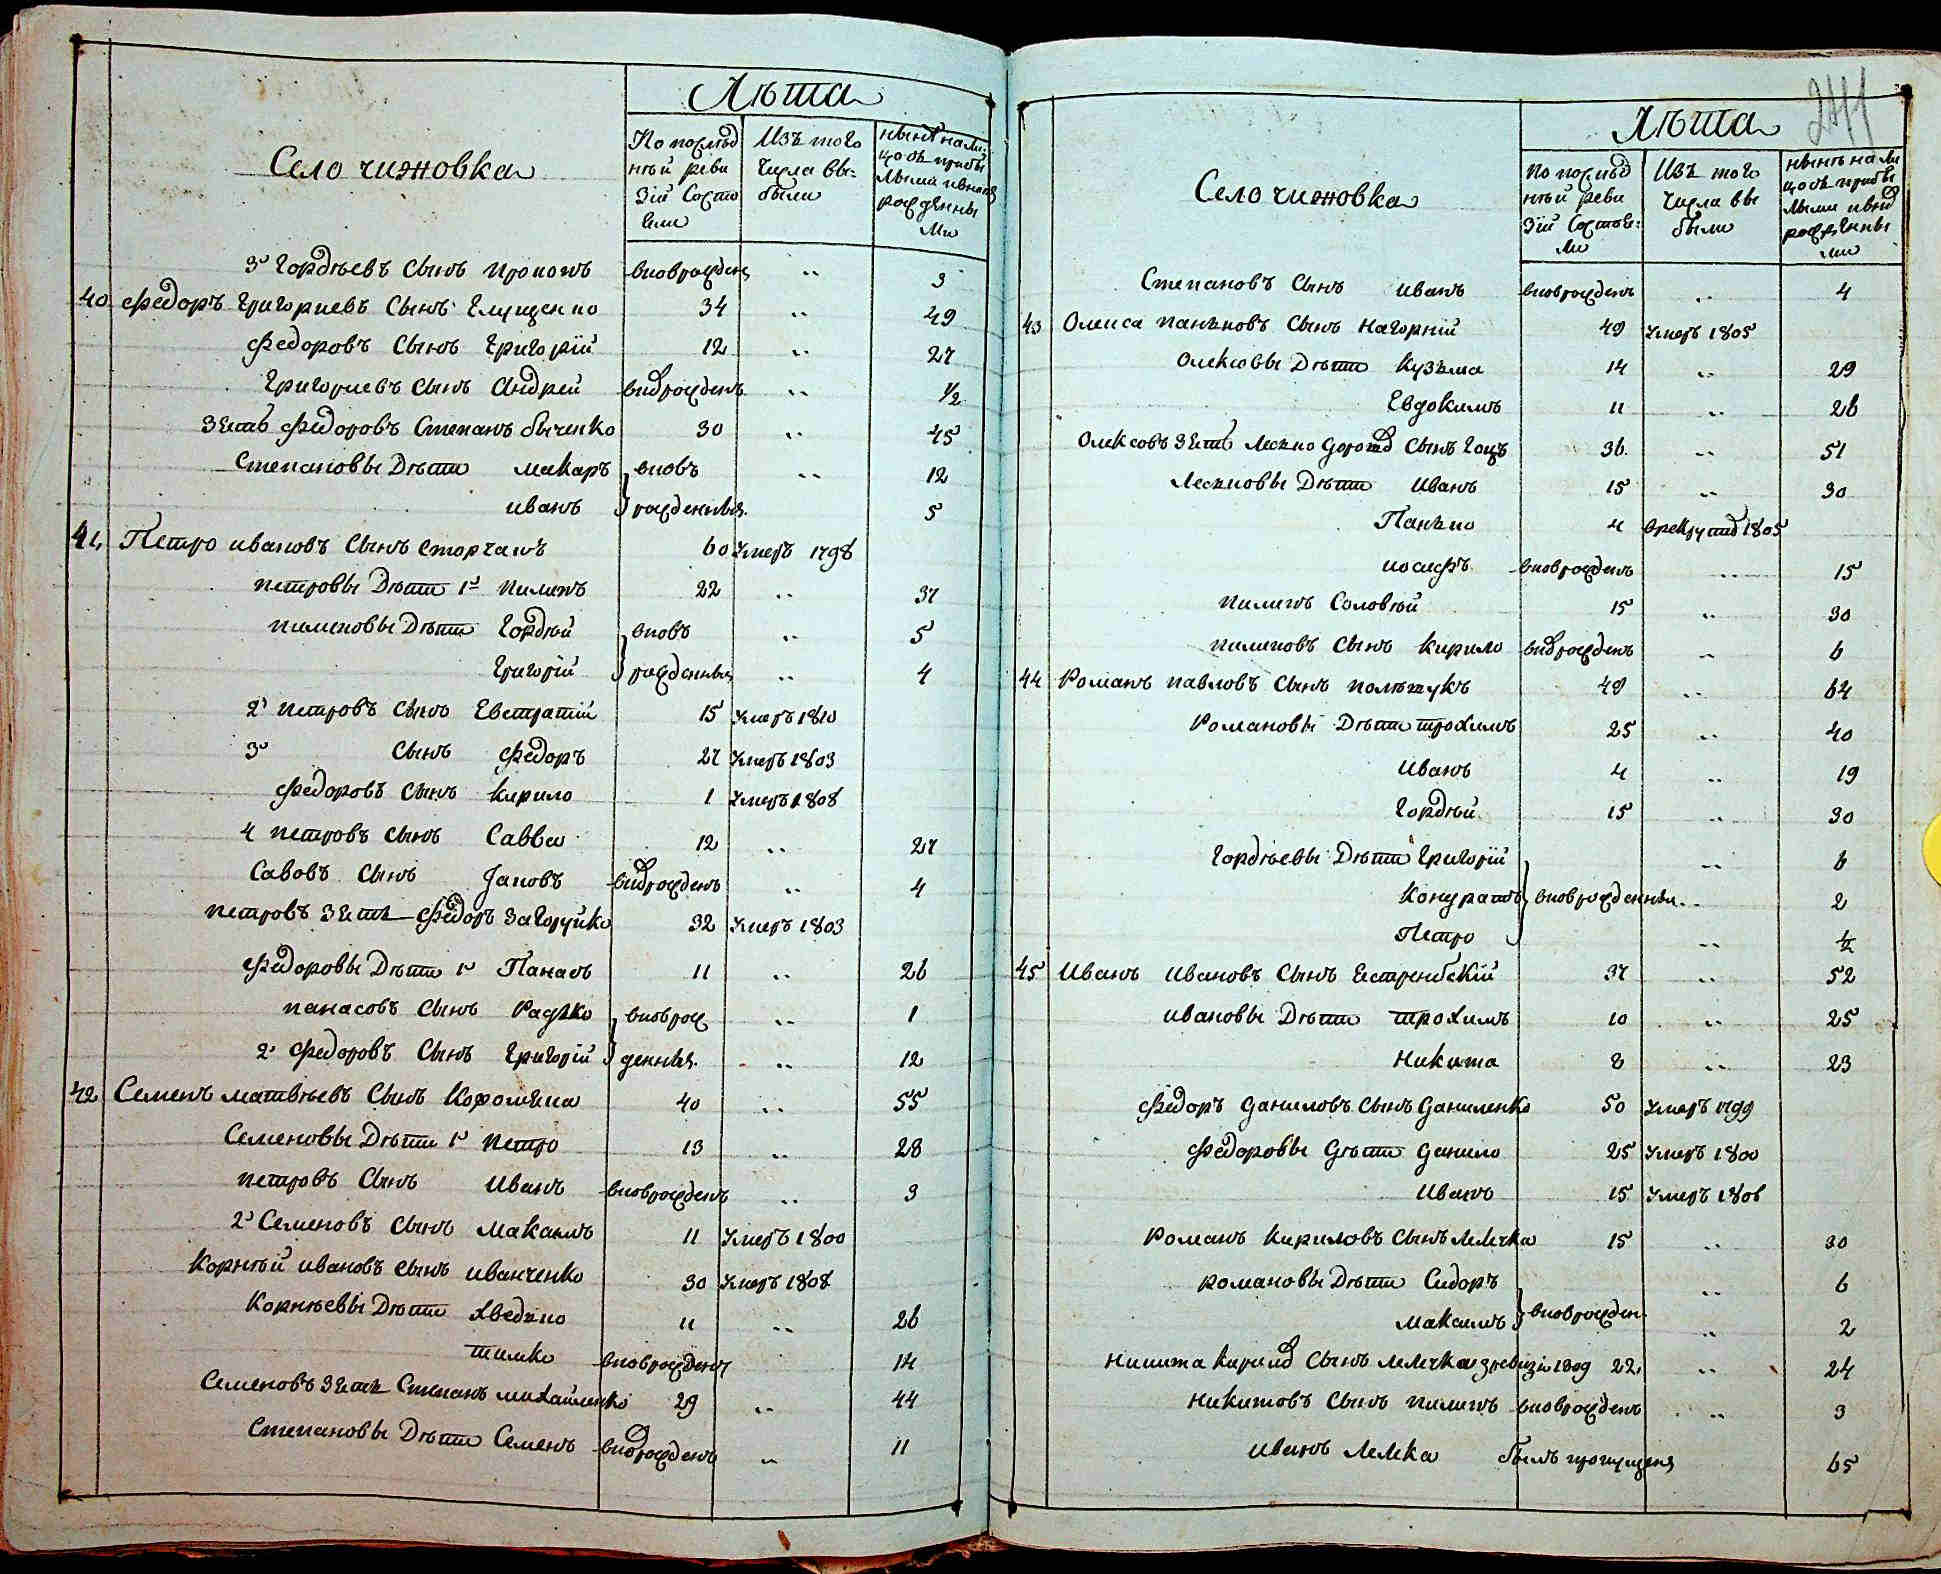 Лѣта
Село чижовка
По послѣд
ней реви
зіи состо
яли
Изъ того
числа вы-
были
нынѣ нали-
цо съ прибы
лыми и внов
рожденны
ми
3й Гордѣевъ Сынъ Прокопъ вновророжденъ „ 3
40 Федоръ Григориевъ Сынъ Глущенко 34 „ 49
Федоровъ Сынъ Григорій 12 „ 27
Григориевъ Сынъ Андрей вновьрожденъ „ 1/2
Зять Федоровъ Степанъ Быченко 30 „ 45
Степановы Дѣти Макаръ вновь „ 12
иванъ рожденныя „ 5
41 Петро ивановъ Сынъ Сторчакъ 60 Умеръ 1798
петровы Дѣти 1й Пилипъ 22 „ 37
пилиповы Дѣти Гордѣй вновъ „ 5
Григорій рожденныя „ 4
2й петровъ Сынъ Евстратій 15 Умеръ 1810
3й Сынъ Федоръ 27 Умеръ 1803
Федоровъ Сынъ Кирило 1 Умеръ 1808
4 петровъ Сынъ Савва 12 „ 27
Савовъ Сынъ Яковъ вновьрожденъ „ 4
петровъ Зять Федоръ Загоруйко 32 Умеръ 1803
Федоровы Дѣти 1й Панасъ 11 „ 26
панасовъ Сынъ Радько вноврож „ 1
2й Федоровъ Сынъ Григорій денныя „ 12
42 Семенъ матвѣевъ Сынъ 40 „ 55
Семеновы Дѣти 1й петро 13 „ 28
петровъ Сынъ Иванъ вноврожденъ „ 3
2й Семеновъ Сынъ Максимъ 11 Умеръ 1800
Корнѣй ивановъ Сынъ иванченко 30 Умеръ 1808
Корнѣевы Дѣти Хведько 11 „ 26
тимко вноврожденъ 14
Семеновъ Зять Степанъ михайленко 29 „ 44
Степановы Дѣти Семенъ вновьрожденъ „ 11
241
Лѣта
Село чижовка
По послѣд
ней реви
зіи состоя-
ли
Изъ того
числа вы
были
нынѣ нали
цо съ прибы
лыми и внов
рожденны
ми
Степановъ Сынъ иванъ вноврожденъ „ 4
43 Олекса панковъ Сынъ Нагорній 49 Умеръ 1805
Олексовы Дѣти Кузьма 14 „ 29
Евдокимъ 11 „ 26
Олексовъ Зять Леско Сынъ Гоцъ 36 „ 51
Лесковы Дѣти Иванъ 15 „ 30
Панько 4 врекруты 1805
иосифъ вноврожденъ „ 15
пилипъ Соловѣй 15 „ 30
пилиповъ Сынъ Кирило вновьрожденъ „ 6
44 Романъ павловъ Сынъ полѣщукъ 49 „ 64
Романовы Дѣти трохимъ 25 „ 40
Иванъ 4 „ 19
Гордѣй 15 „ 30
Гордѣевы Дѣти Григорій „ 6
Кондратъ вноврожденныя „ 2
Петро „ 1/2
45 Иванъ Ивановъ Сынъ Ястрембскій 37 „ 52
ивановы Дѣти трохимъ 10 „ 25
Никита 8 „ 23
Федоръ Даниловъ Сынъ Даниленко 50 Умеръ 1799
Федоровы Дѣти Данило 25 Умеръ 1800
Иванъ 15 Умеръ 1806
Романъ Кириловъ Сынъ 15 „ 30
романовы Дѣти Сидоръ „ 6
Максимъ вноврожден „ 2
Никита Сынъ 22 „ 24
Никитовъ Сынъ пилипъ вноврожденъ „ 3
иванъ былъ пропущенъ 65